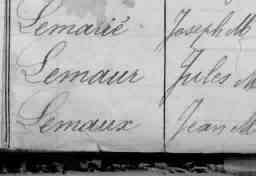 Lemarié Joseph M
Lemaur Jules M
Lemaux Jean M